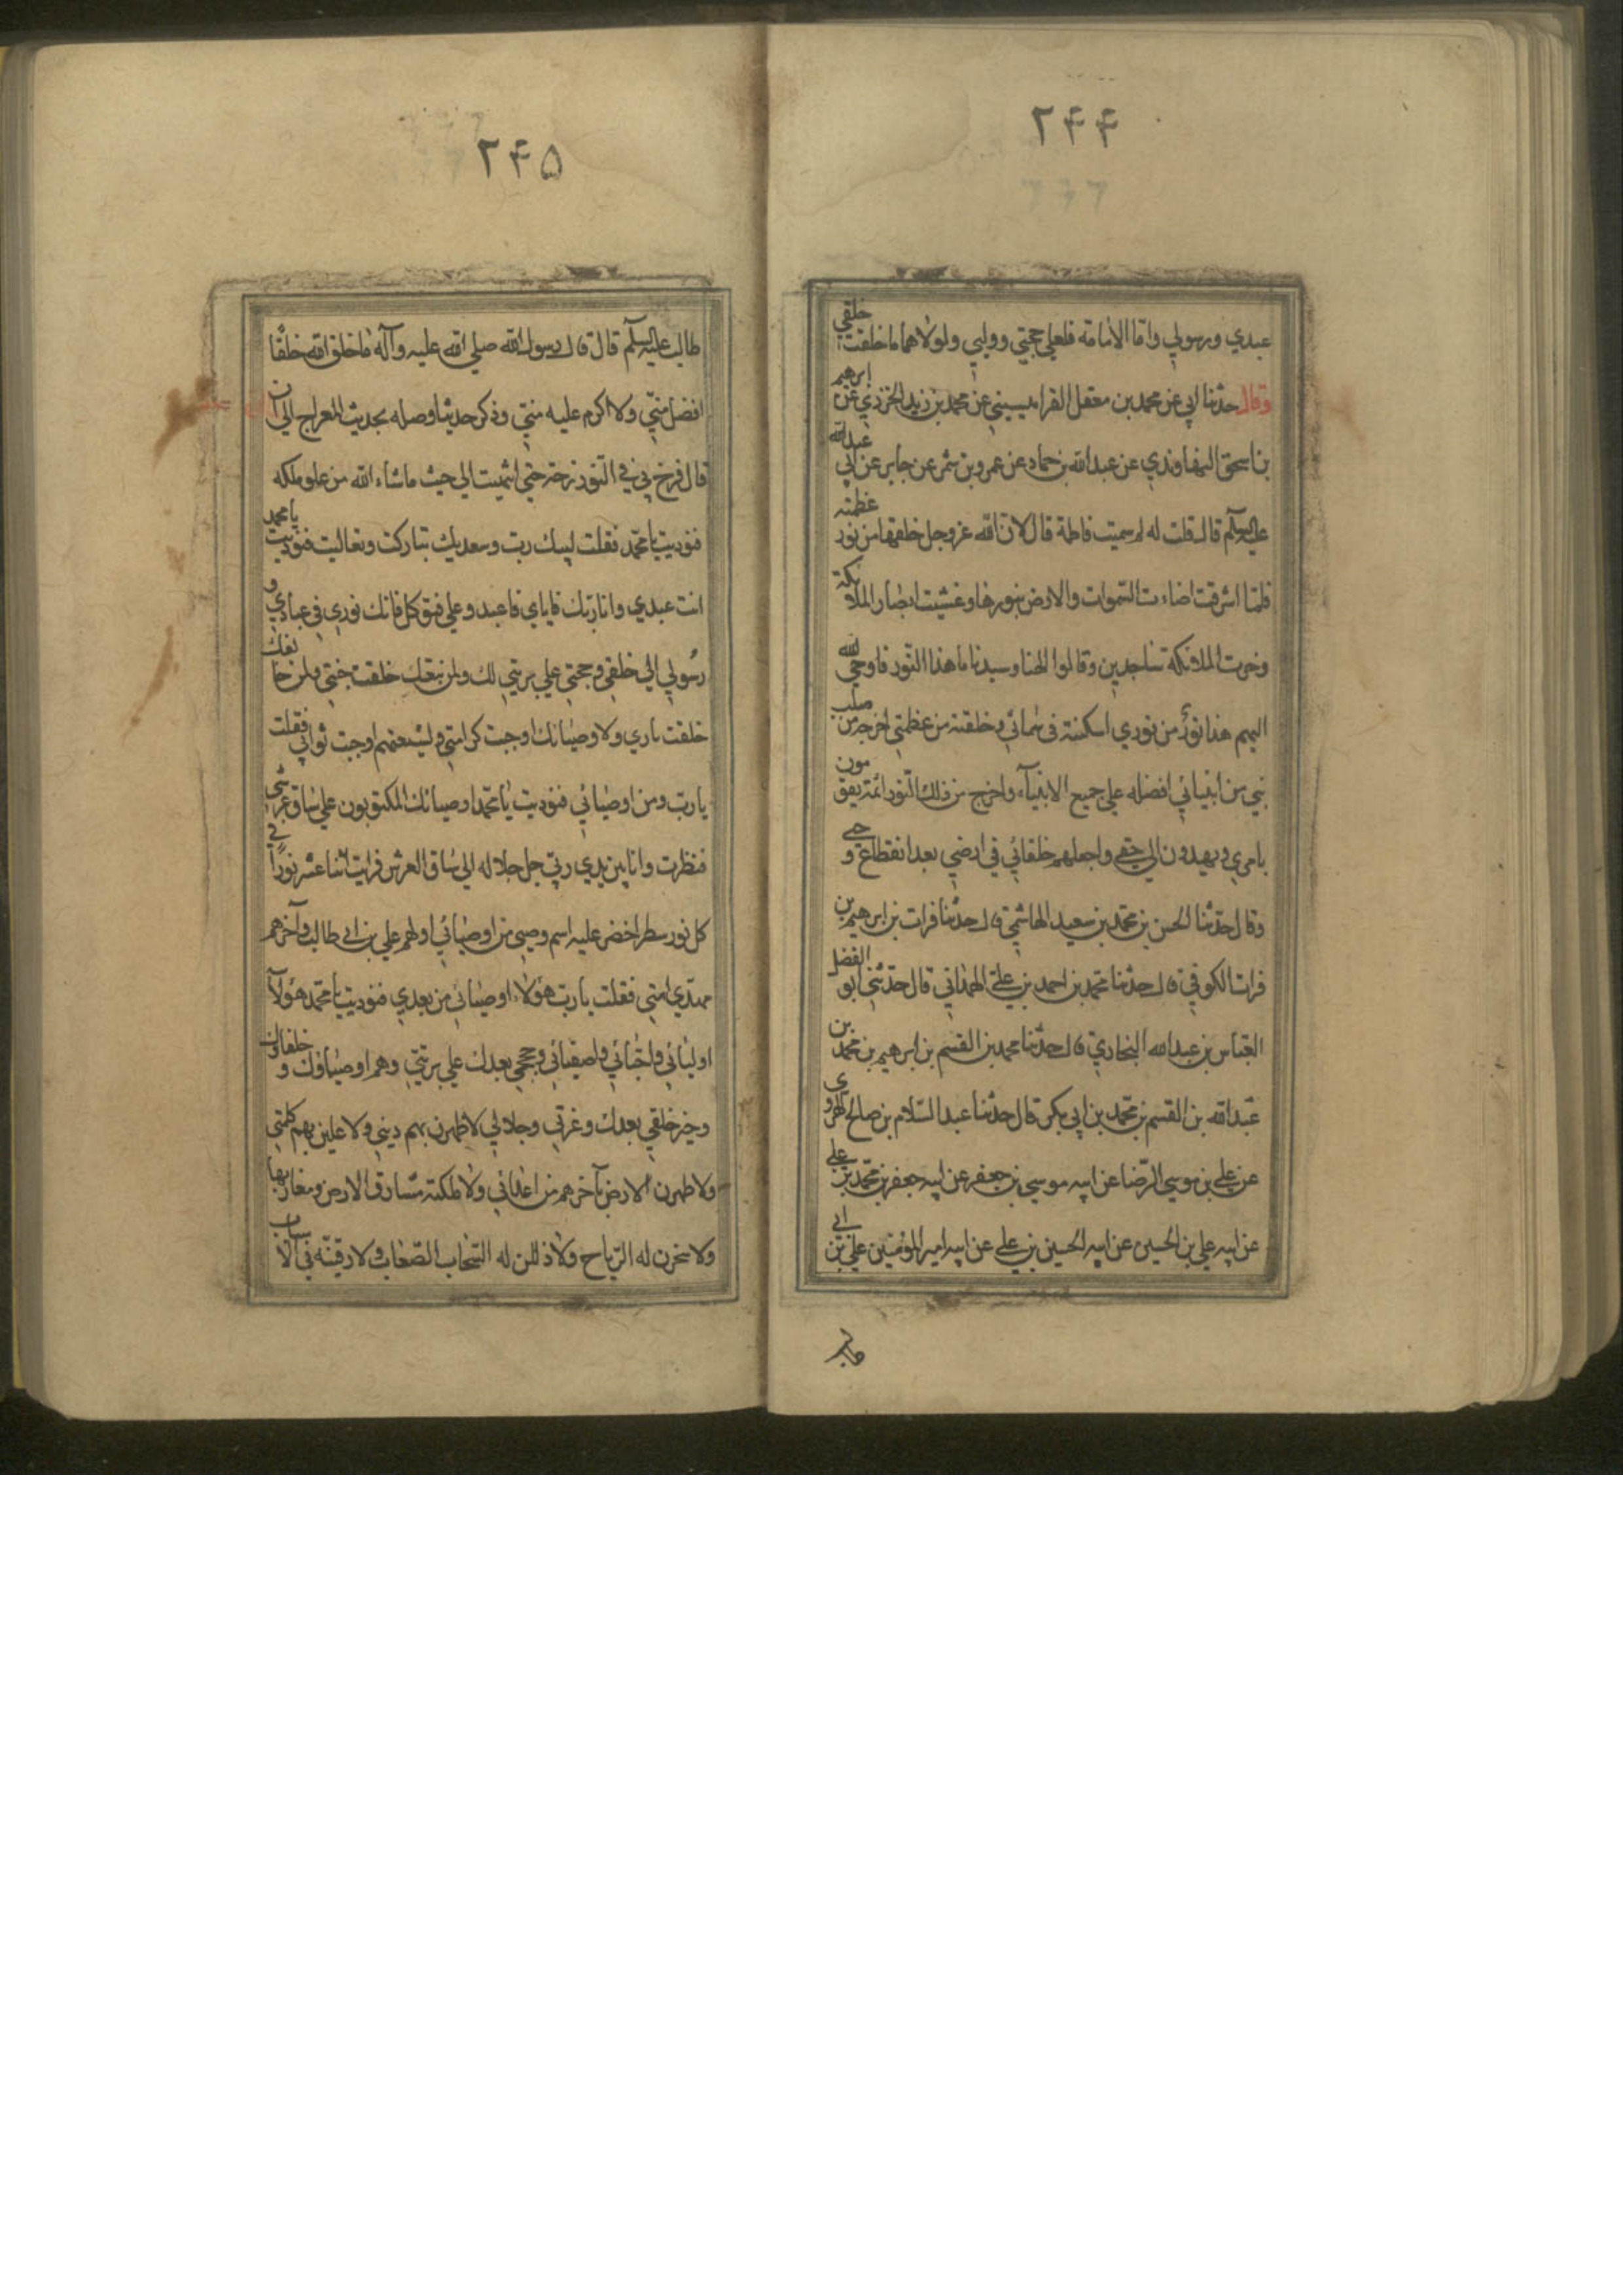 ۲۴۴
عبدي ورسولي واما الامامة فلعلي حجتي ووليي ولولاهما ما خلقت خلقي
وقال حدثنا ابي عن محمد بن معقل القراميسيني عن محمد بن زيد الجزري عن ابرهيم
بن اسحق النهاوندي عن عبدالله بن حماد عن عمرو بن شمر عن جابر عن ابي عبدالله
عليه السلم قال قلت له لم سميت فاطمة قال لان الله عز وجل خلقها من نور عظمته
فلما اشرقت اضاءت السموات والارض بنورها وغشيت ابصار الملائكة
وخرت الملائكة ساجدين وقالوا الهنا وسيدنا ما هذا النور فاوحى الله
اليهم هذا نور من نوري اسكنته في سمائي وخلقته من عظمتي اخرجه من صلب
نبي من انبيائي افضله علي جميع الانبيآء واخرج من ذلك النور ائمة يقومون
بامري ويهدون الي حقي واجعلهم خلفائي في ارضي بعد انقطاع وحيي
وقال حدثنا الحسن بن محمد بن سعيد الهاشمي قال حدثنا فرات بن ابرهيم بن
فرات الكوفي قال حدثنا محمد بن احمد بن علي الهمداني قال حدثني ابو الفضل
العباس بن عبدالله البخاري قال حدثنا محمد بن القسم بن ابرهيم بن محمد بن
عبدالله بن القسم بن محمد بن ابي بكر قال حدثنا عبد السلام بن صالح الهروي
عن علي بن موسي الرضا عن ابيه موسي بن جعفر عن ابيه جعفر بن محمد بن علي
عن ابيه علي بن الحسين عن ابيه الحسين بن علي عن ابيه امير المؤمنين علي بن ابي
۲۴۵
طالب عليه السلم قال قال رسول الله صلي الله عليه وآله ما خلق الله خلقا
افضل مني ولا اكرم عليه مني وذكر حديثا وصله بحديث المعراج الي ان
قال فزخ بي في النور زخة حتي انتهيت الي حيث ما شاء الله من علو ملكه
فنوديت يا محمد فقلت لبيك رب وسعديك تباركت وتعاليت فنوديت يا محمد
انت عبدي وانا ربك فاياي فاعبد وعلي فتوكل فانك نوري في عبادي و
رسولي الي خلقي وحجتي علي بريتي لك ولمن تبعك خلقت جنتي ولمن خالفك
خلقت ناري ولاوصيائك اوجبت كرامتي ولشيعتهم اوجبت ثوابي فقلت
يا رب ومن اوصيائي فنوديت يا محمد اوصيائك المكتوبون علي ساق عرشي
فنظرت وانا بين يدي ربي جل جلاله الي ساق العرش فرايت اثنا عشر نورا في
كل نور سطر اخضر عليه اسم وصي من اوصيائي اولهم علي بن ابي طالب وآخرهم
مهدي امتي فقلت يا رب هؤلاء اوصيائي من بعدي فنوديت يا محمد هؤلآ
اوليائي واحبائي واصفيائي وحججي بعدك علي بريتي وهم اوصياؤك وخلفاؤك
وخير خلقي بعدك وعزتي وجلالي لاظهرن بهم ديني ولاعلين بهم كلمتي
ولاطهرن الارض بآخرهم من اعدائي ولاملكنه مشارق الارض ومغاربها
ولاسخرن له الرياح ولاذللن له السحاب الصعاب ولارقينه في الاسباب